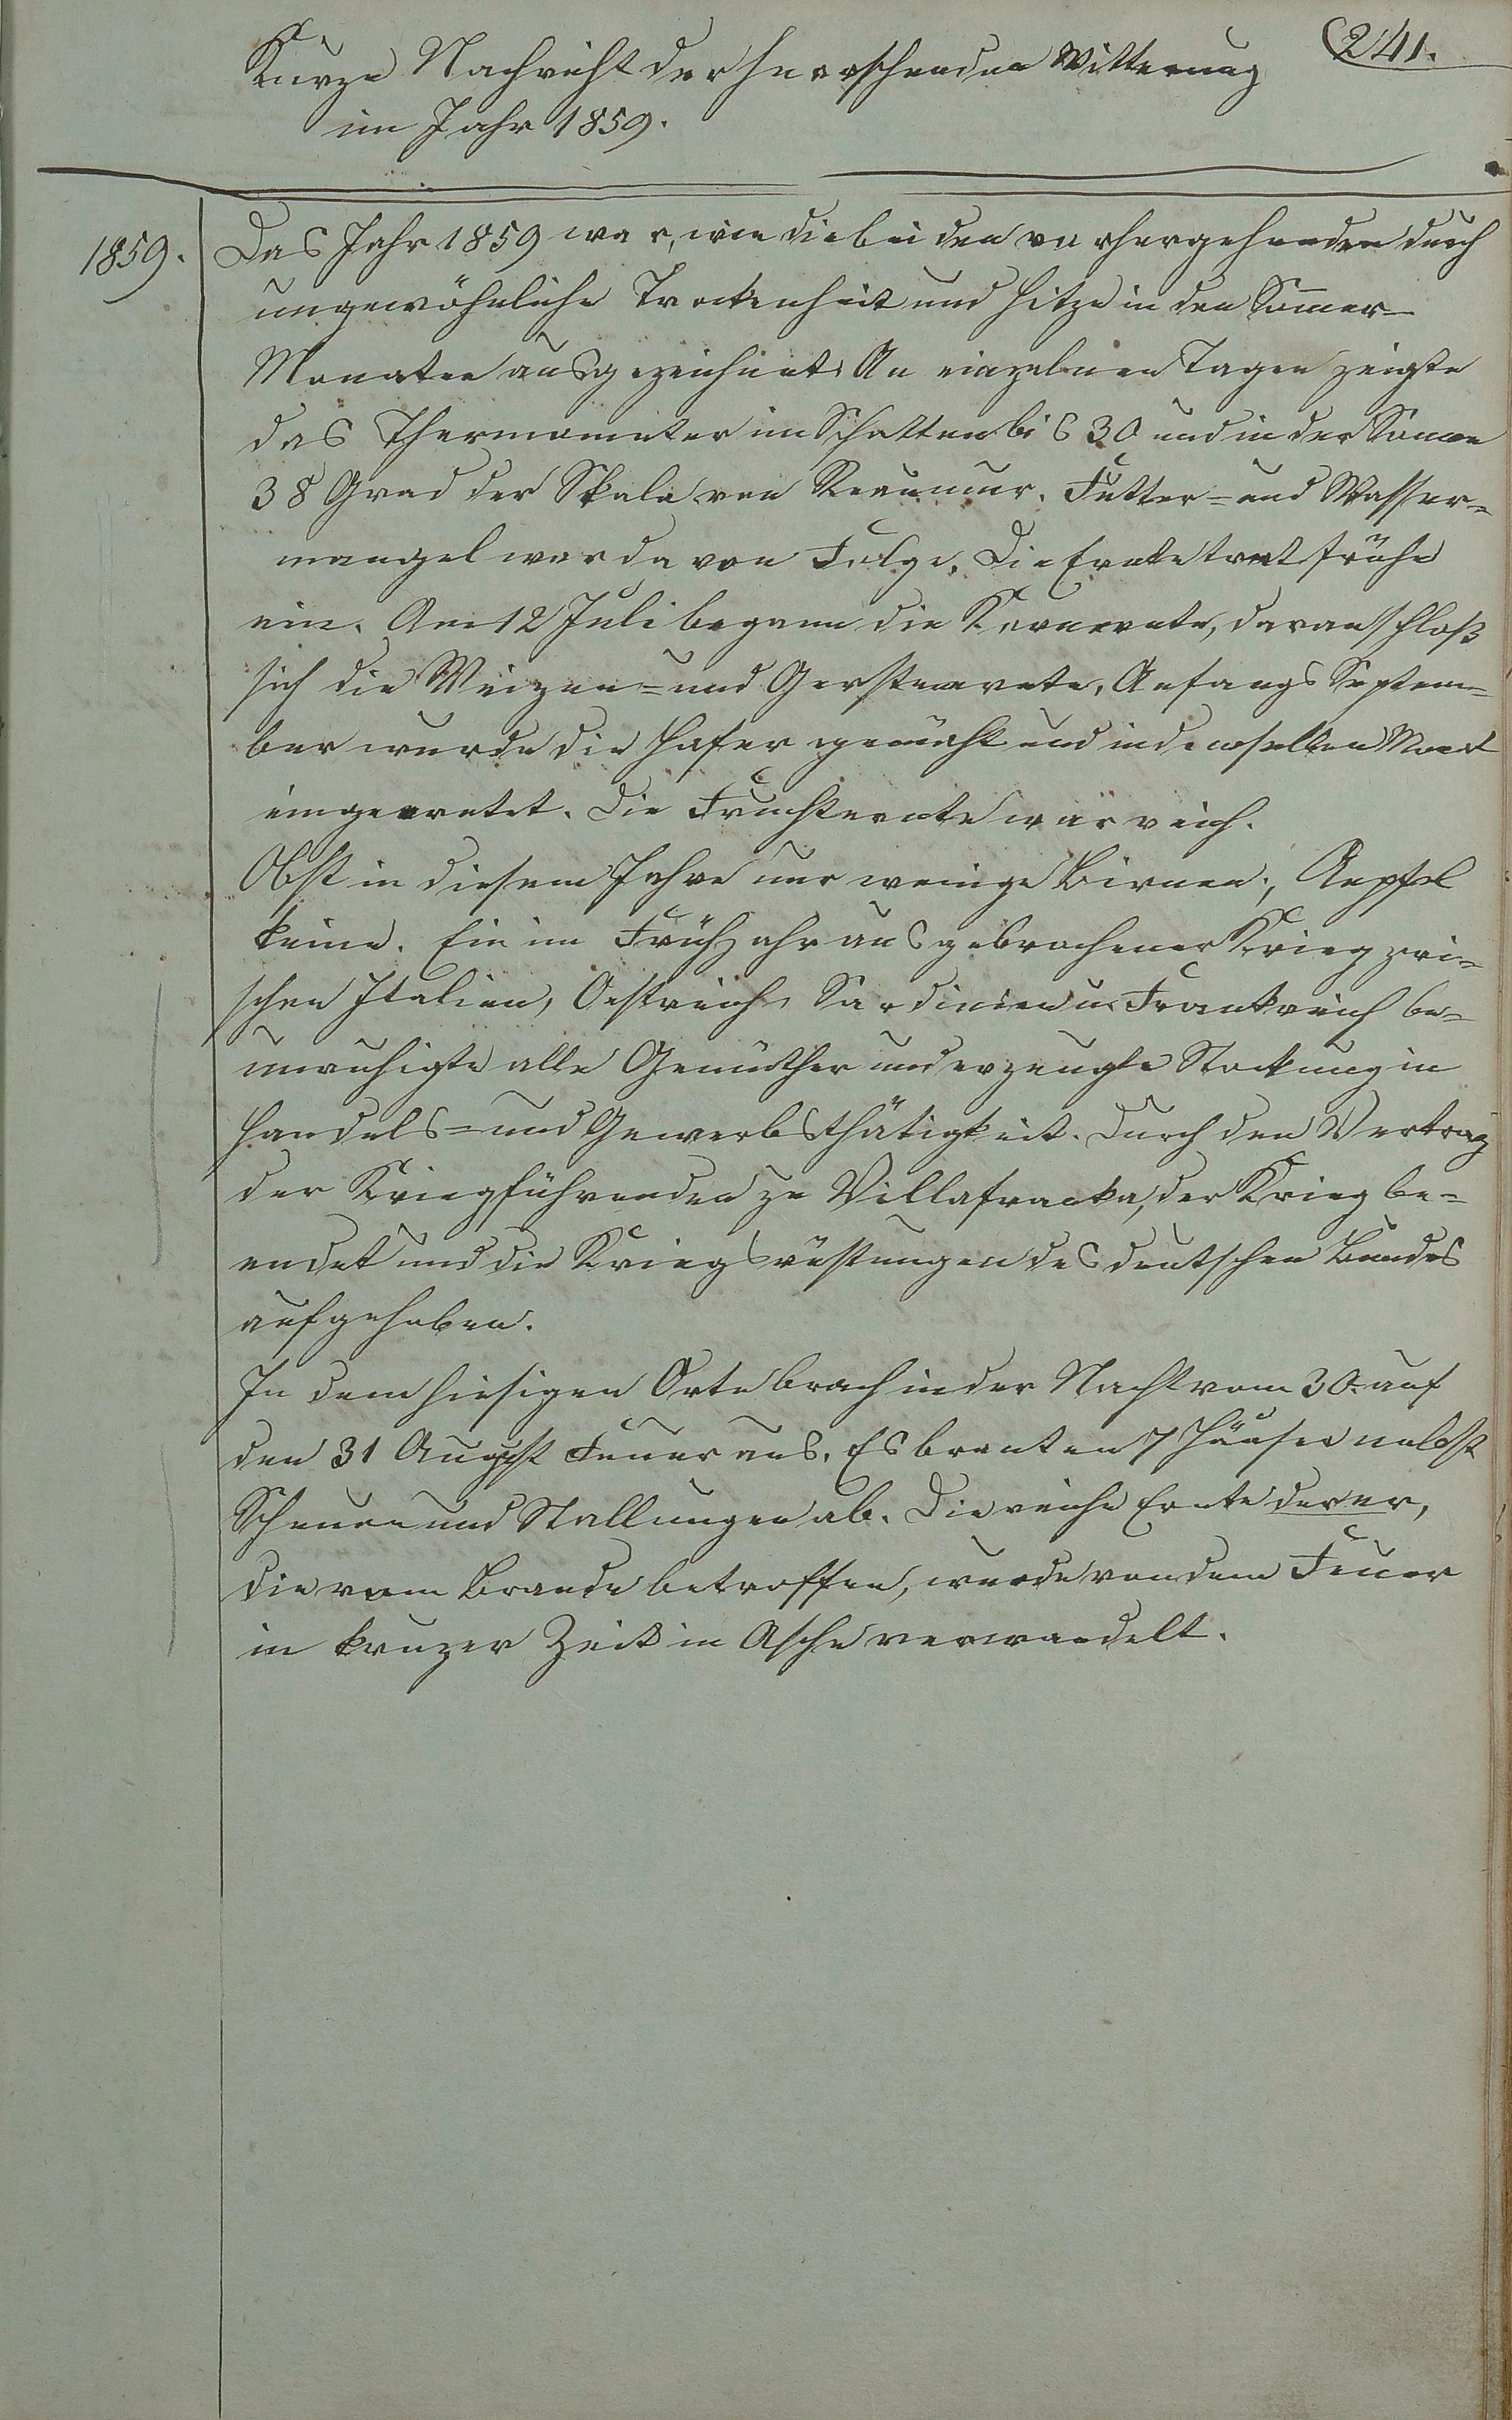 241.
Kurze Nachricht der herrschenden Witterung
im Jahr 1859.
1859.
Das Jahr 1859 war, wie die beiden vorhergehenden durch
ungewöhnliche Trockenheit und Hitze in den Sommer-
Monaten ausgezeichnet. An einzelnen Tagen zeigte
das Thermometer im Schatten bis 30 und in der Sonne
38 Grad der Skala von Reaumur. Futter- und Wasser-
mangel war davon Folge. Die Ernte trat frühe
ein. Am 12 Juli begann die Kornernte, daran schloß
sich die Weizen- und Gerstenernte, Anfangs Septem-
ber wurde die Hafer gemäht und in demselben Monat
eingeerntet. Die Fruchternte war reich.
Obst in diesem Jahre nur wenige Birnen, Aepfel
keine. Ein im Frühjahr ausgebrochener Krieg zwi-
schen Italien, Oestreich, Sardinien u. Frankreich be-
unruhigte alle Gemüther und erzeugte Stockung in
Handels- und Gewerbsthätigkeit. Durch den Vertrag
der Kriegführenden zu Villafranka, der Krieg be-
endet und die Kriegsrüstungen des deutschen Bundes
aufgehoben.
In dem hiesigen Orte brach in der Nacht vom 30. auf
den 31 August Feuer aus. Es branten 7 Häuser nebst
Scheuern und Stallungen ab. Die reiche Ernte derer,
die vom Brande betroffen, wurde von dem Feuer
in kruzer Zeit in Asche verwandelt.